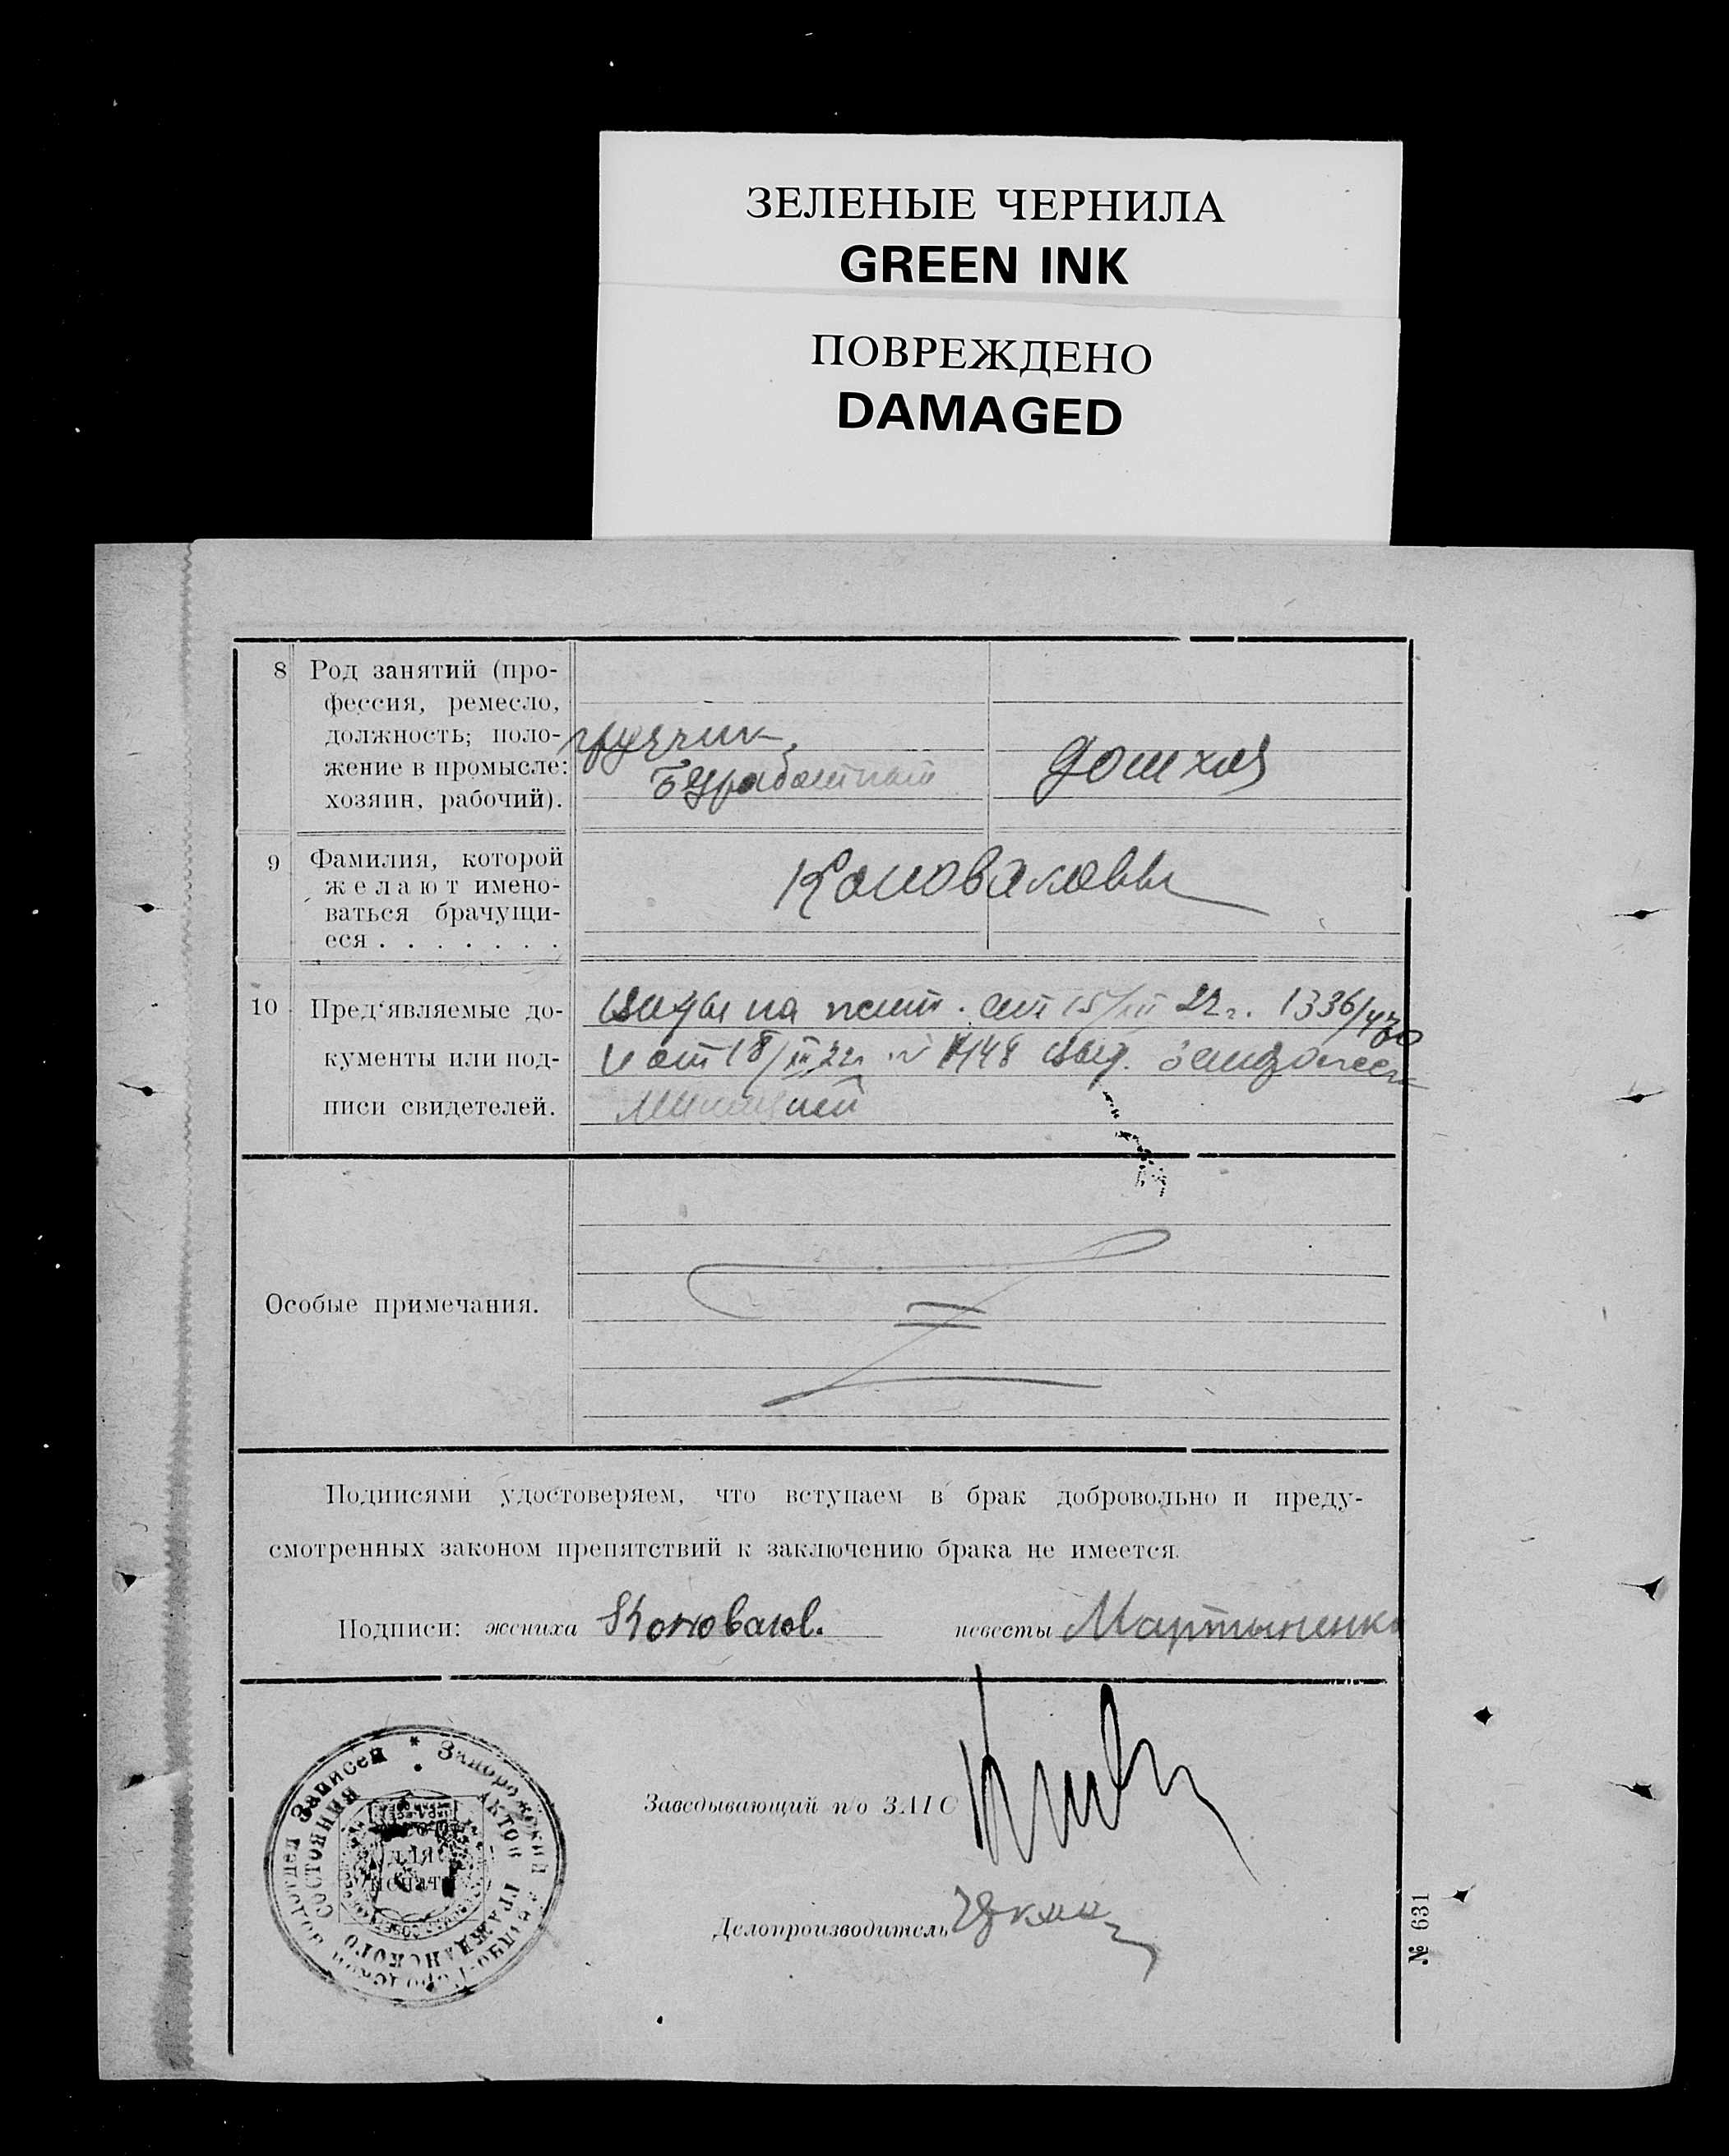 ЗЕЛЕНЫЕ ЧЕРНИЛА
GREEN INK
ПОВРЕЖДЕНО
DAMAGED
8 Род занятий (про-
фессия, ремесло,
должность; поло-
жение в промысле:
хозяин, рабочий).
грузчик
Безработный
домхоз
9 Фамилия, которой
желают имено-
ваться брачущи-
еся . . . . . . .
Коноваловы
10 Пред'являемые до-
кументы или под-
писи свидетелей.
Виды на жит. от 15/III 22 г. 1336/470
и от 18/III 22 г. № 4148 выд.
Милицией
Особые примечания.
Подписями удостоверяем, что вступаем в брак добровольно и преду-
смотренных законом препятствий к заключению брака не имеется.
Подписи: жениха Коновалов. невесты Мартыненко
Заведывающий п/о ЗАГС
Делопроизводитель
Запорожский
Подотдел Записей * Актов Гражданского Состояния
для
печати
№ 631